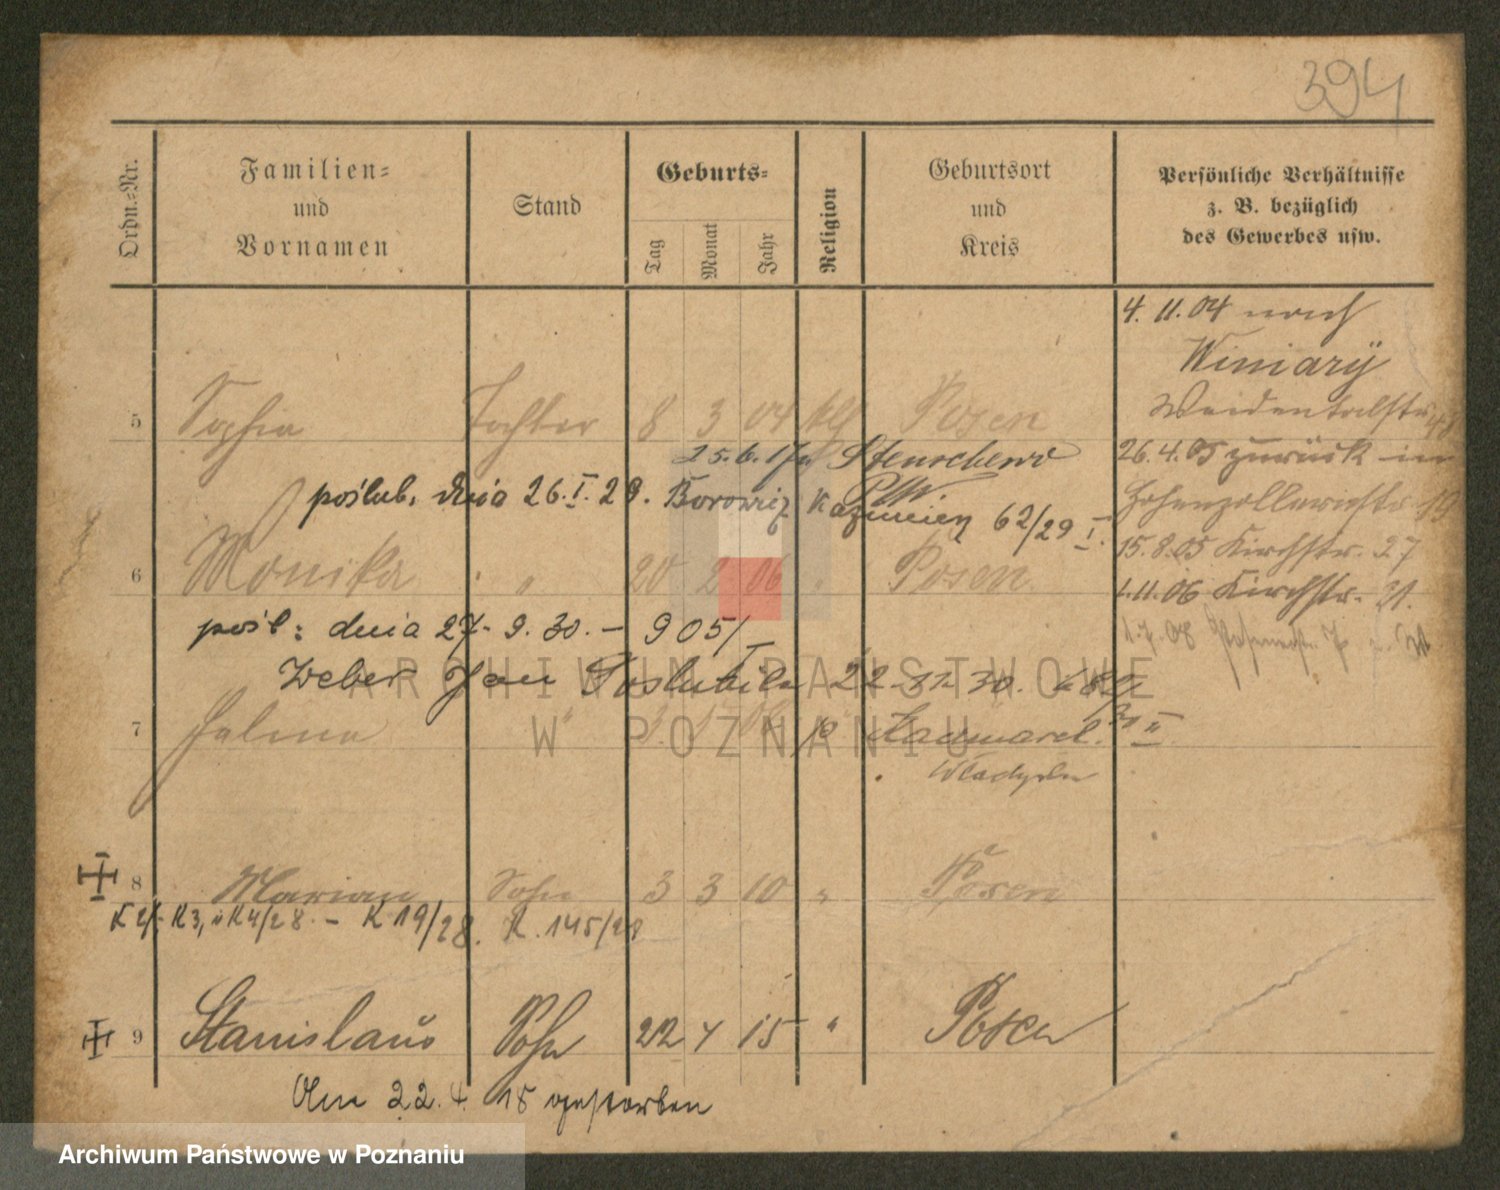 394
Ordn.-Nr.
Familien-
und
Vornamen
Stand
Geburts-
Tag
Monat
Jahr
Religion
Geburtsort
und
Kreis
Persönliche Verhältnisse
z. B. bezüglich
des Gewerbes usw.
4. 11. 04 nach
Winiary
Weidentalstr. 48
5 Sophia Tochter 8 3 04 Posen
25. 6. 17 Stenschewo
26. 4. 05 zurück in
poślub. dnia 26. I. 29. Kazimierz 62/29 I.
Hohenzollernstr. 19
15. 8. 05 Kirchstr. 27
6 Monika " 20 2 06 " Posen
1. 11. 06 Kirchstr. 21.
pośl: dnia 27. 9. 30. – 905/
1. 7. 08
Weber Jan Poślubiła 22 11 30.
7 Halina "
8 Marian Sohn 3 3 10 " Posen
K 3, K 4/28. – K 19/28. K. 145/28
9 Stanislaus Sohn 22 4 15 " Posen
Am 22. 4. 15 gestorben
ARCHIWUM PAŃSTWOWE
W POZNANIU
Archiwum Państwowe w Poznaniu